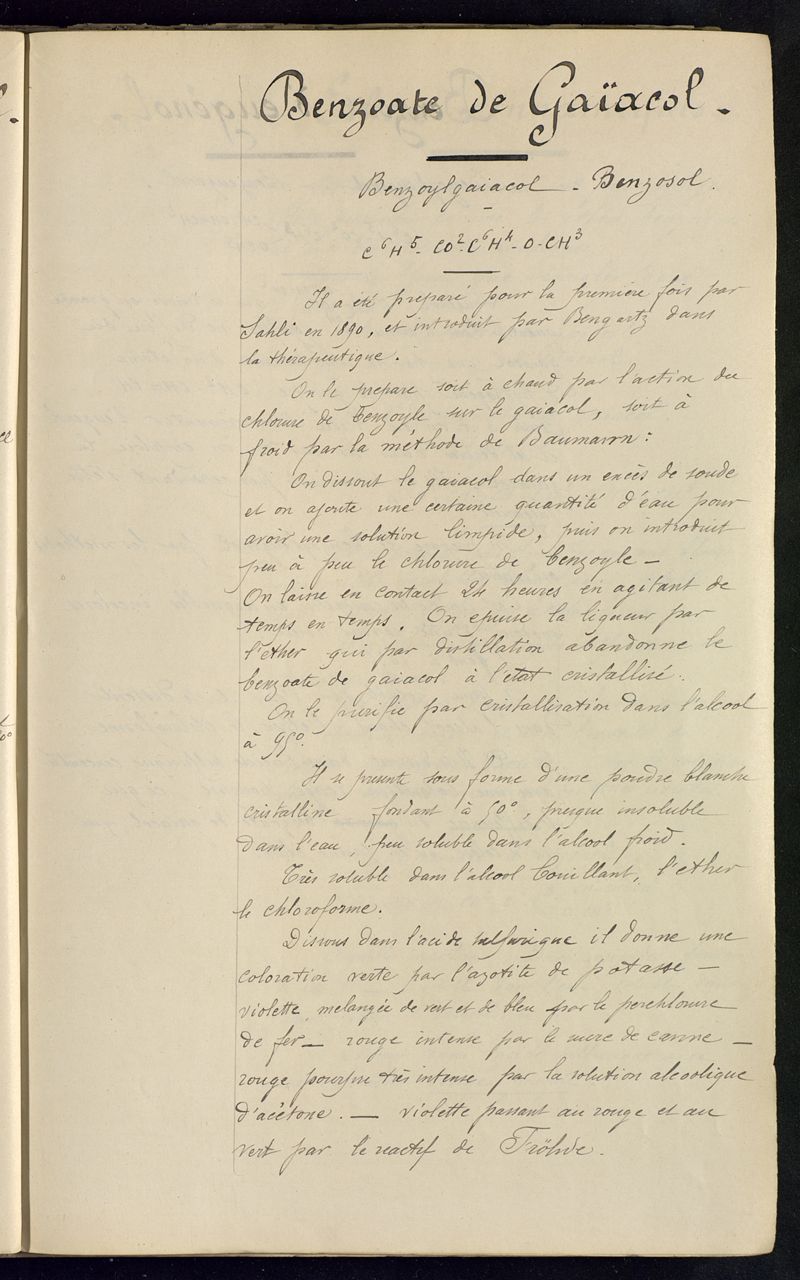 Benzoate de Gaïacol -
Benzoylgaiacol - Benzosol.
C⁶H⁵- CO²-C⁶H⁴-O-CH³
Il a été preparé pour la première fois par
Sahli en 1890, et introduit par Bengartz dans
la thérapeutique.
On le prepare soit à chaud par l'action du
chlorure de benzoyle sur le gaïacol, soit à
froid par la méthode de Baumann :
On dissout le gaiacol dans un excès de soude
et on ajoute une certaine quantité d'eau pour
avoir une solution limpide, puis on introduit
peu à peu le chlorure de benzoyle -
On laisse en contact 24 heures en agitant de
temps en temps. On epuise la liqueur par
l'ether qui par distillation abandonne le
benzoate de gaiacol à l'état cristallisé.
On le purifie par cristallisation dans l'alcool
à 95°.
Il se presente sous forme d'une poudre blanche
cristalline fondant à 50°, presque insoluble
dans l'eau, peu soluble dans l'alcool froid.
Très soluble dans l'alcool bouillant, l'ether
le chloroforme.
Dissous dans l'acide sulfurique il donne une
coloration verte par l'azotite de potasse -
violette, melangée de vert et de bleu par le perchlorure
de fer - rouge intense par le sucre de canne -
rouge pourpre très intense par la solution alcoolique
d'acétone. - violette passant au rouge et au
vert par le reactif de Fröhde.